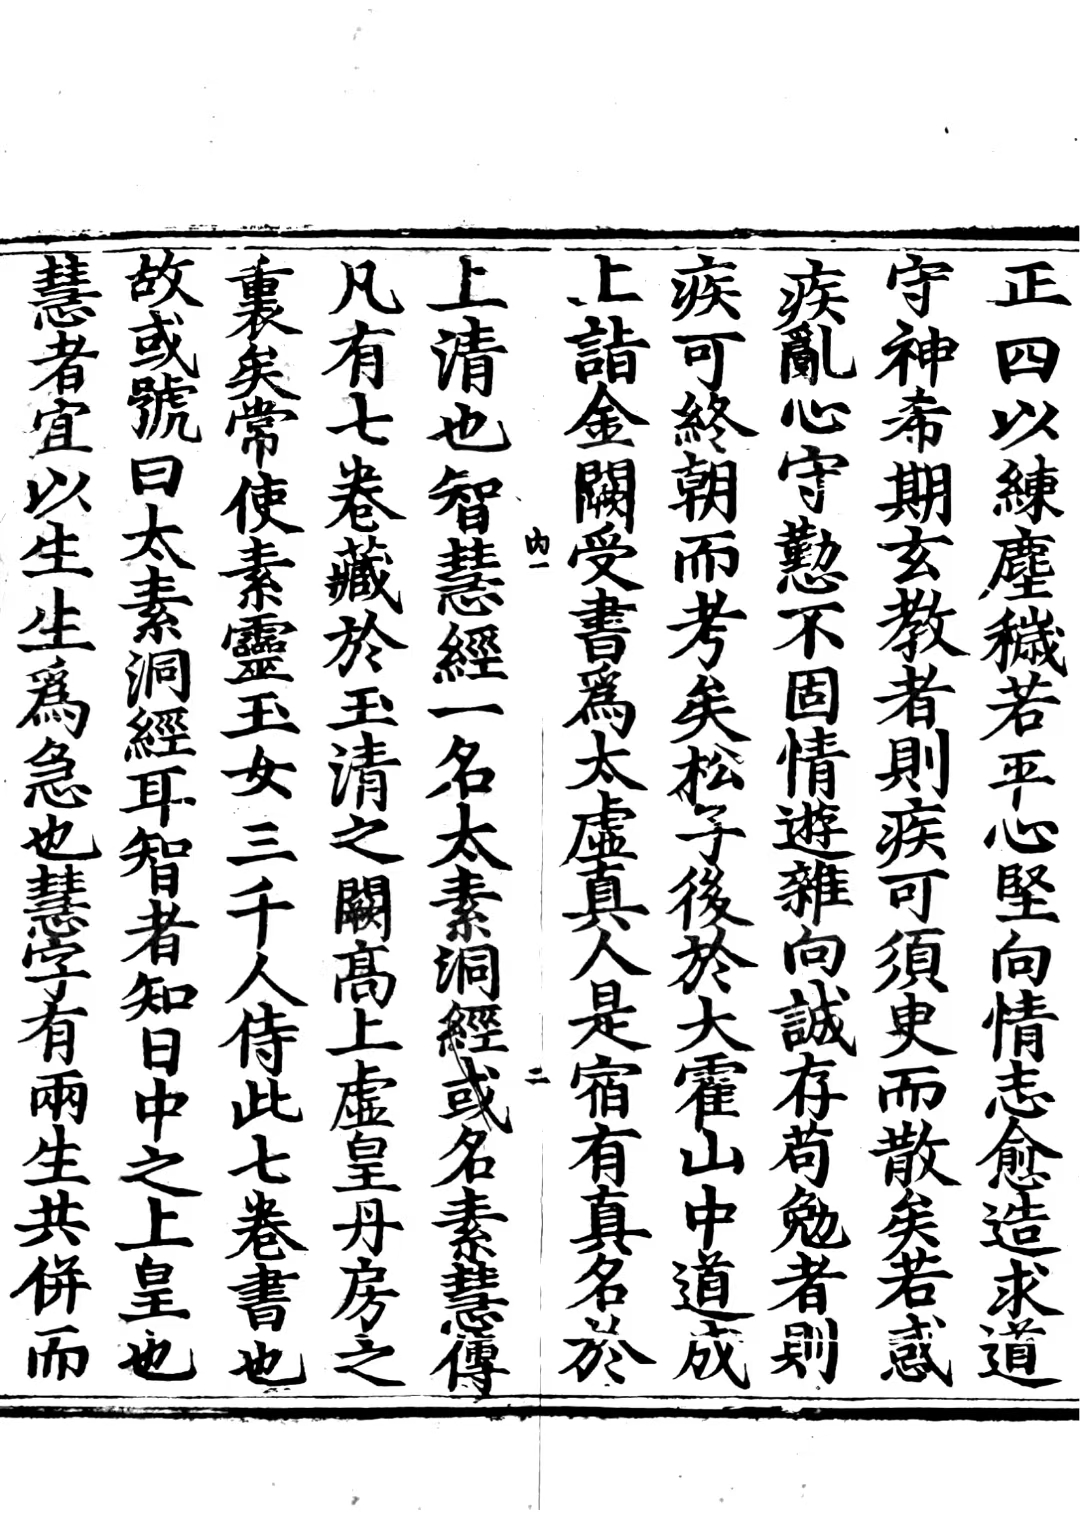 正四以練塵穢若平心堅向情志愈造求道
守神希期玄教者則疾可須臾而散矣若惑
疾亂心守懃不固情遊雜向誠存苟勉者則
疾可終朝而考矣松子後於大霍山中道成
上詣金闕受書爲太虛真人是宿有真名於
内一
二
上清也智慧經一名太素洞經或名素慧傳
凡有七卷藏於玉清之闕高上虛皇丹房之
裏矣常使素靈玉女三千人侍此七卷書也
故或號曰太素洞經耳智者知日中之上皇也
慧者宜以生生爲急也慧字有兩生共併而